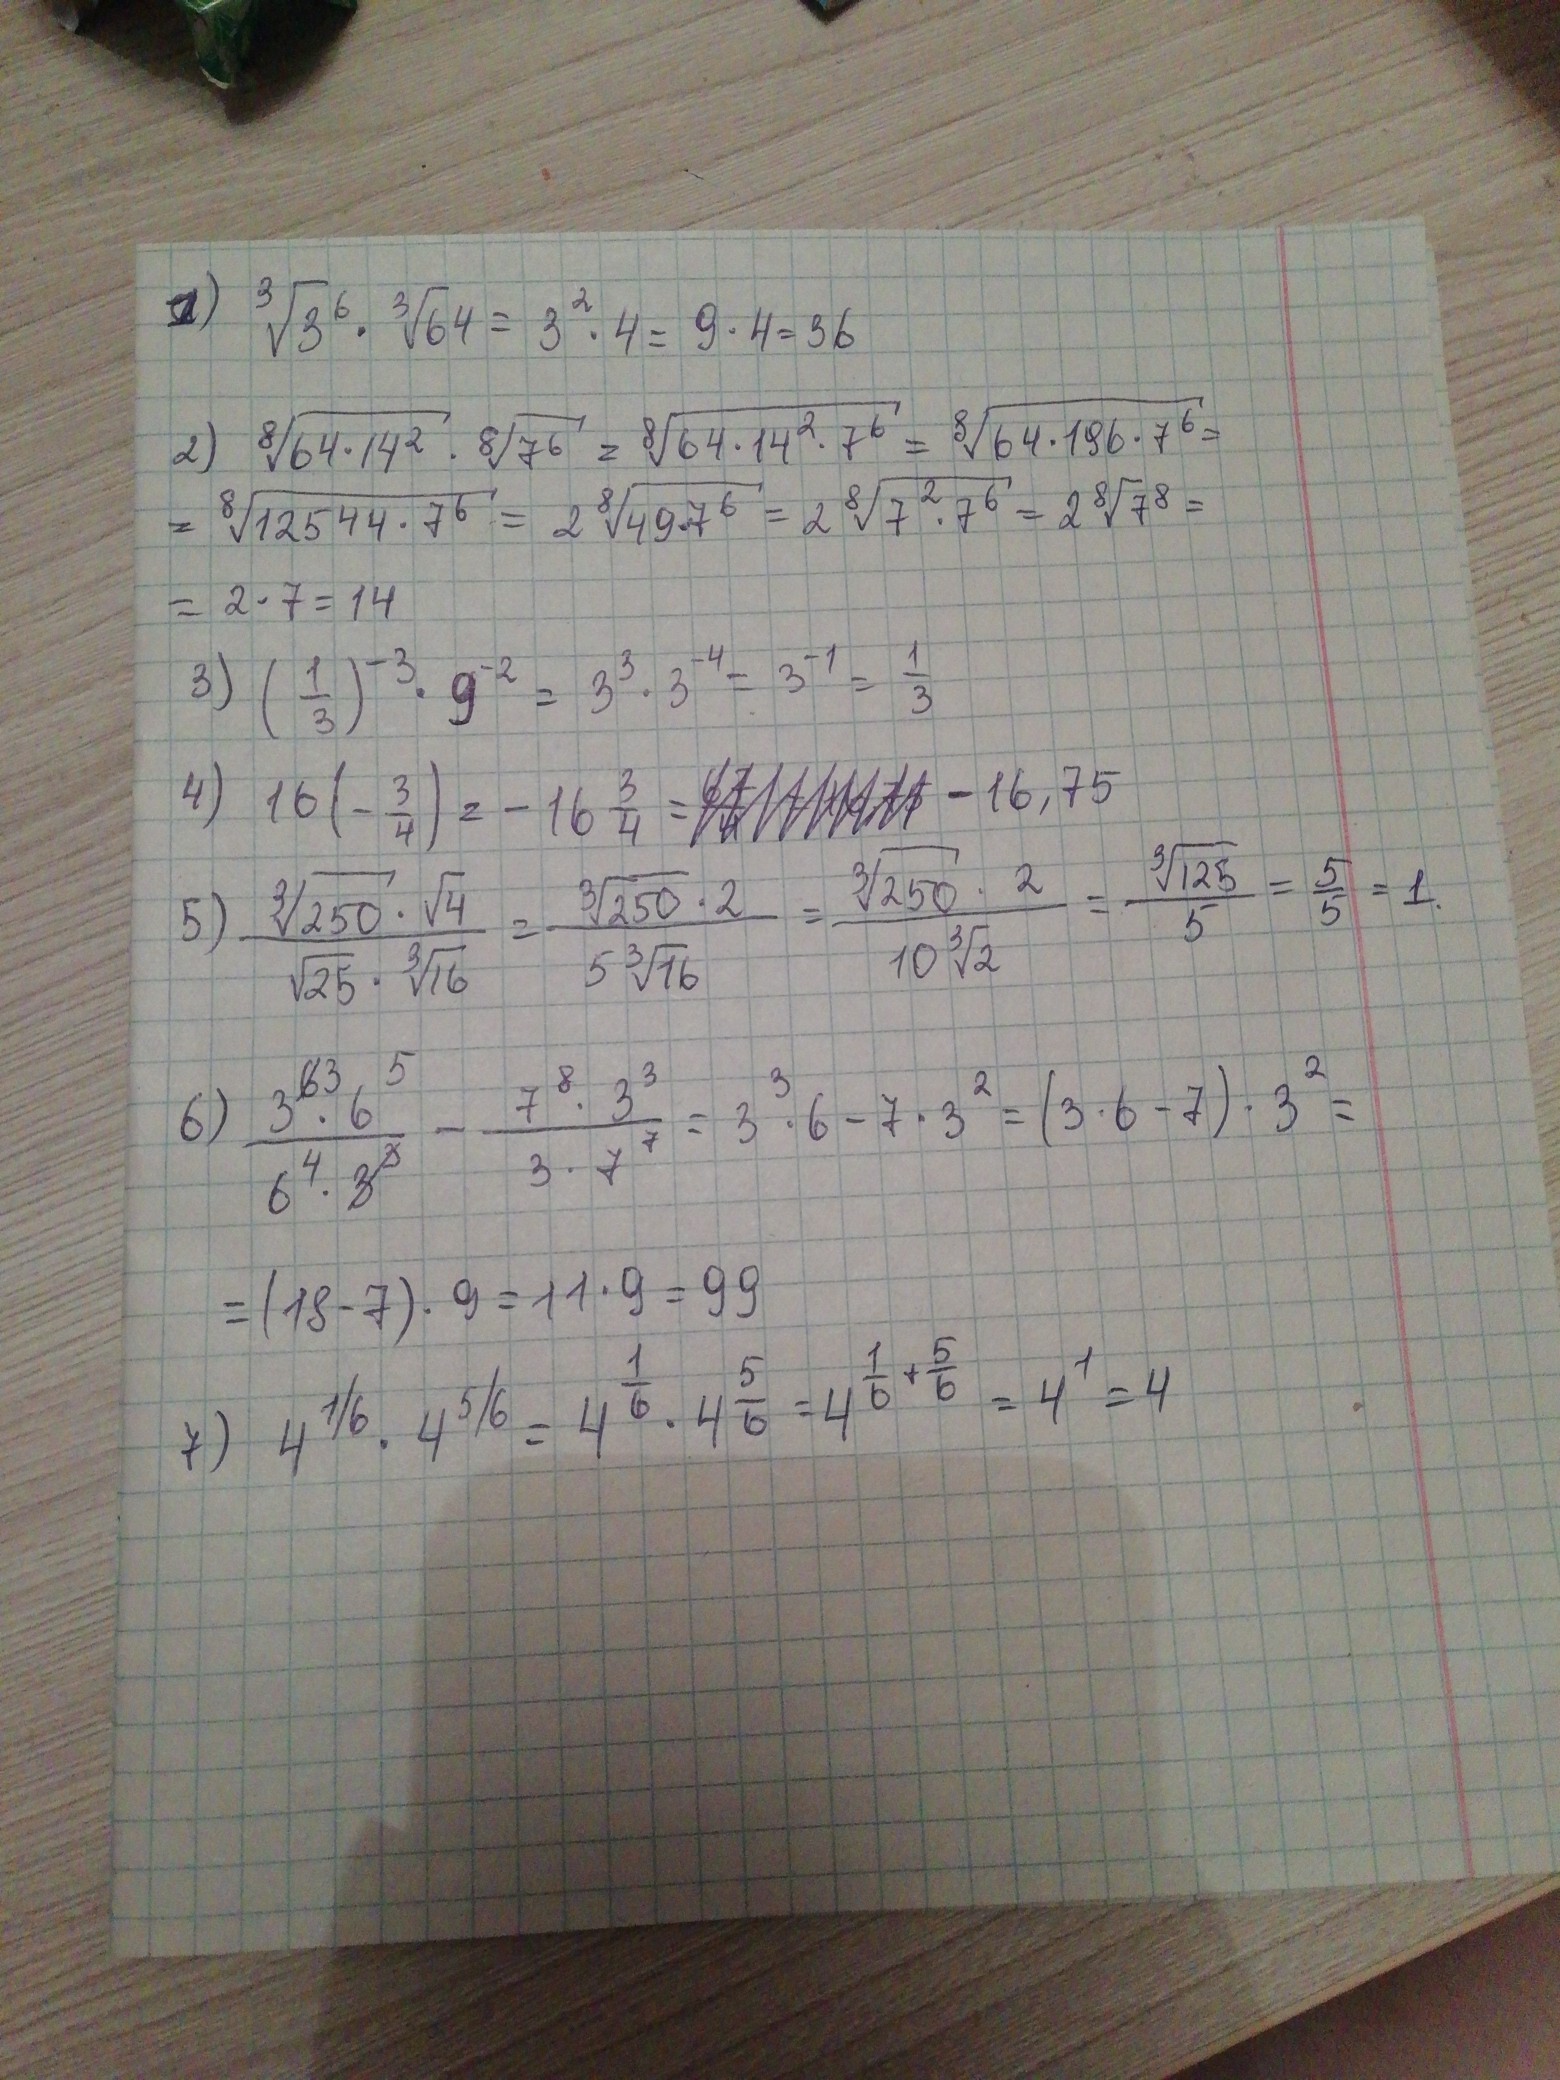 1) ∛3⁶ · ∛64 = 3² · 4 = 9 · 4 = 36
2) ⁸√(64·14²) · ⁸√(7⁶) = ⁸√(64·14²·7⁶) = ⁸√(64·196·7⁶) =
= ⁸√(12544·7⁶) = 2 ⁸√(49·7⁶) = 2 ⁸√(7²·7⁶) = 2 ⁸√7⁸ =
= 2·7 = 14
3) (1/3)⁻³ · 9⁻² = 3³ · 3⁻⁴ = 3⁻¹ = 1/3
4) 16(-3/4) = -16 3/4 = -16,75
5) (∛250 · √4)/(√25 · ∛16) = (∛250 · 2)/(5∛16) = (∛250 · 2)/(10∛2) = ∛125/5 = 5/5 = 1.
6) (3⁶³ · 6⁵)/(6⁴ · 3³) - (7⁸ · 3³)/(3 · 7⁷) = 3³ · 6 - 7 · 3² = (3·6-7) · 3² =
= (18-7) · 9 = 11·9 = 99
7) 4^1/6 · 4^5/6 = 4^(1/6) · 4^(5/6) = 4^(1/6+5/6) = 4¹ = 4